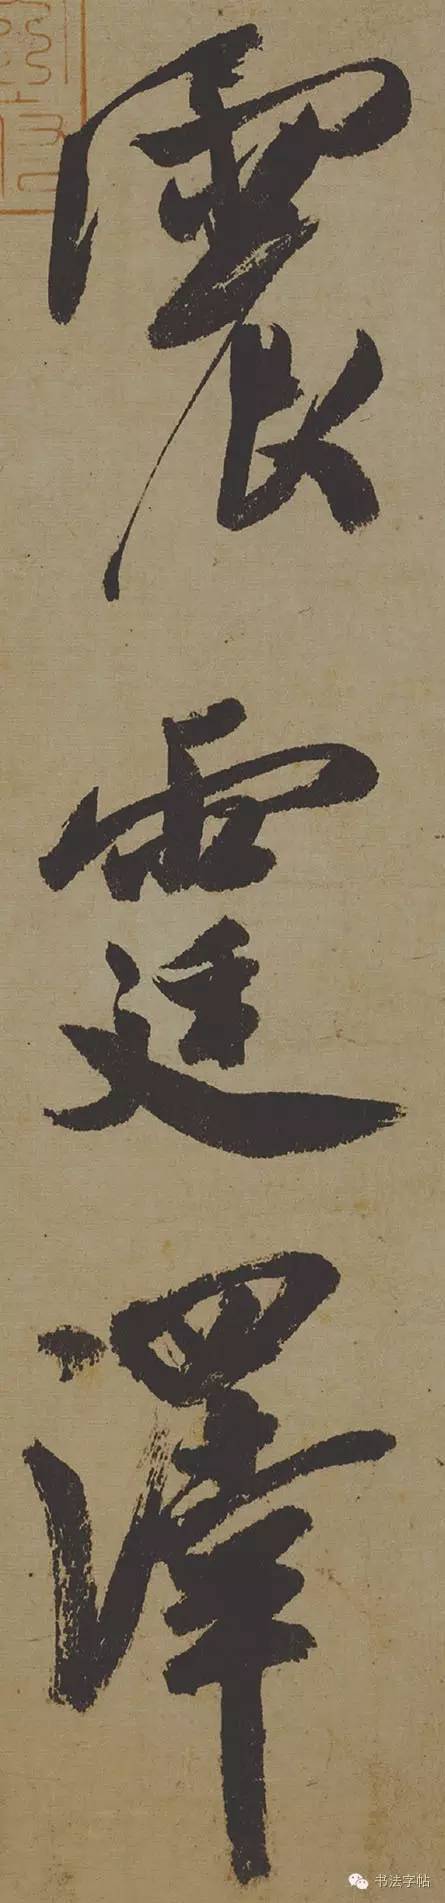 震霆澤
书法字帖